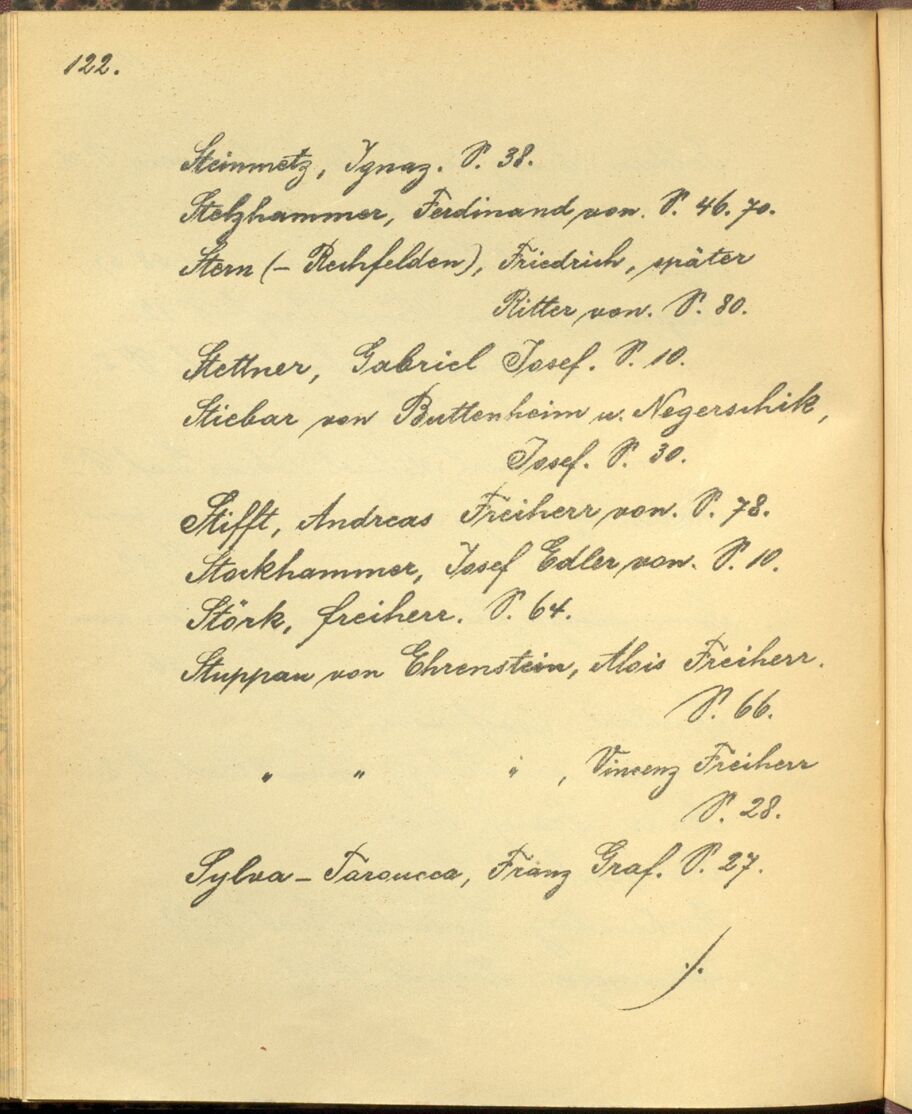 122.
Steinmetz, Ignaz. S. 38.
Stelzhammer, Ferdinand von. S. 46. 70.
Stern (- Rechfelden), Friedrich, später
Ritter von. S. 80.
Stettner, Gabriel Josef. S. 10.
Stiebar von Buttenheim u. Negerschik,
Josef. S. 30.
Stifft, Andreas Freiherr von. S. 78.
Stockhammer, Josef Edler von. S. 10.
Störk, freiherr. S. 64.
Stuppau von Ehrenstein, Alois Freiherr.
S. 66.
" " " , Vincenz Freiherr
S. 28.
Sylva - Taroucca, Franz Graf. S. 27.
./.